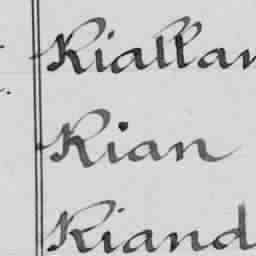 Riallan
Rian
Riand